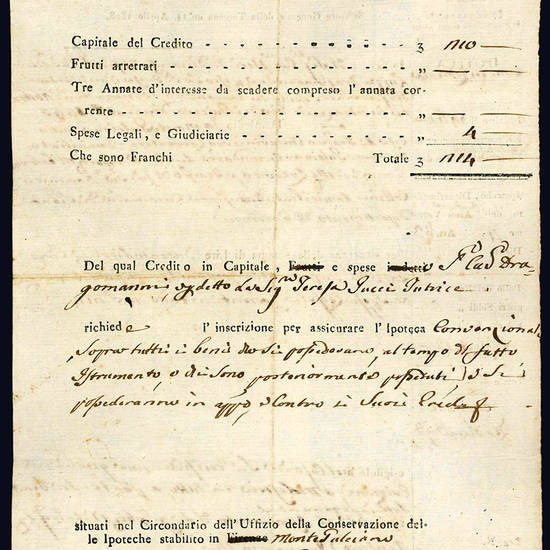 Capitale del Credito - - - - - - - - - - - ʒ 1110 —
Frutti arretrati - - - - - - - - - - - - - „ —
Tre Annate d'interesse da scadere compreso l'annata cor-
rente - - - - - - - - - - - - - - - - „ —
Spese Legali, e Giudiciarie - - - - - - - - „ 4 —
Che sono Franchi Totale ʒ 1114 —
Del qual Credito in Capitale, Frutti e spese indetto
gomanni, e detto La Sig.ra Teresa Pucci Tutrice
richiede l'inscrizione per assicurare l'Ipoteca Convenzionale
Sopra tutti i beni che si possedevano al tempo di fatto
Istrumento, e che sono posteriormente posseduti, e Si
possederanno in e Contro i Suoi Eredi
situati nel Circondario dell'Uffizio della Conservazione del-
le Ipoteche stabilito in Firenze Monte Pulciano